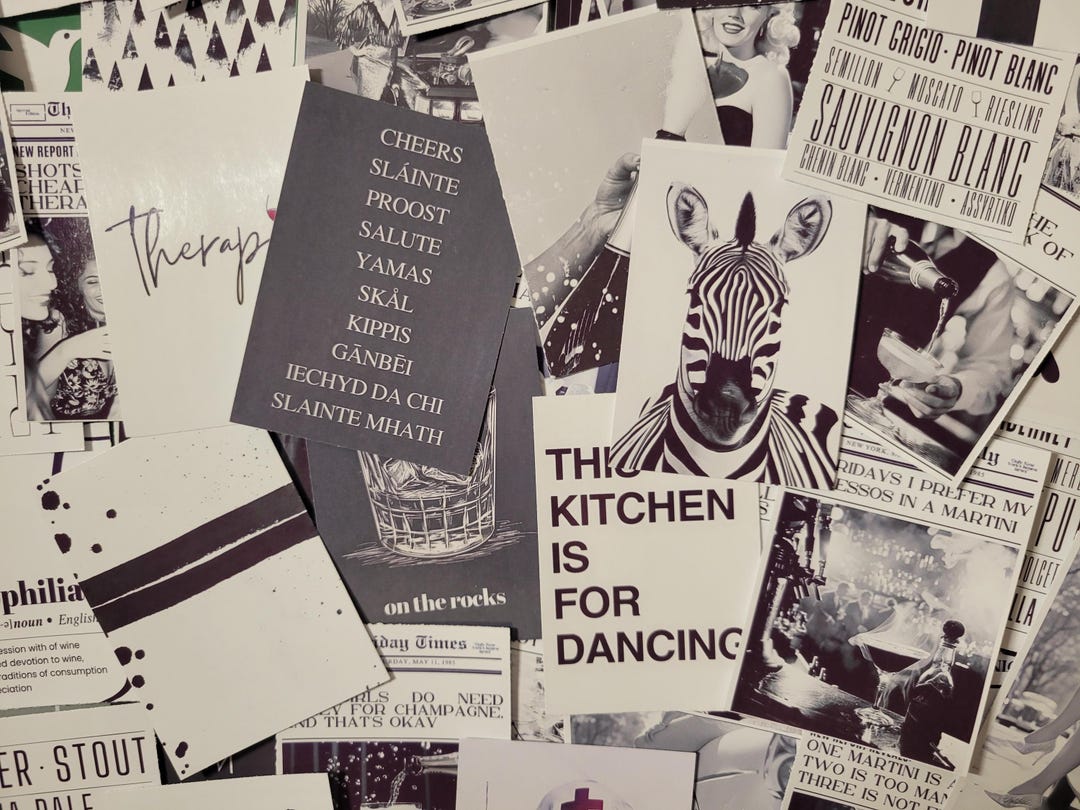 PINOT GRIGIO · PINOT BLANC
SEMILLON MOSCATO RIESLING
SAUVIGNON BLANC
CHENIN BLANC · VERMENTINO · ASSYRTIKO
NEW REPORT
SHOTS
CHEAP
THERA
therap
CHEERS
SLÁINTE
PROOST
SALUTE
YAMAS
SKÅL
KIPPIS
GĀNBĒI
IECHYD DA CHI
SLAINTE MHATH
OF
THIS
KITCHEN
IS
FOR
DANCING
NEW YORK,
RIDAYS I PREFER MY
ESSOS IN A MARTINI
on the rocks
philia
noun • English
ession with of wine
d devotion to wine,
raditions of consumption
eciation
day Times
DAY, MAY 11, 1985
RLS DO NEED
Y FOR CHAMPAGNE.
ND THAT'S OKAY
ER · STOUT
A PALE
ONE MARTINI IS A
TWO IS TOO MAN
THREE IS NOT